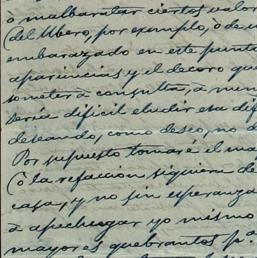 ò malbaratar ciertos valor
(del Ubero, por exemplo, ò de u
embarazado en este punto
apariencias y el decoro que
someter à consulta, à men
seria dificil eludir esa dif
deseando, como deseo, no d
Por supuesto tomaré el ma
(ò la refaccion siquiera de
casa, y no sin esperanza
à apechugar yo mismo
mayores quebrantos pa.